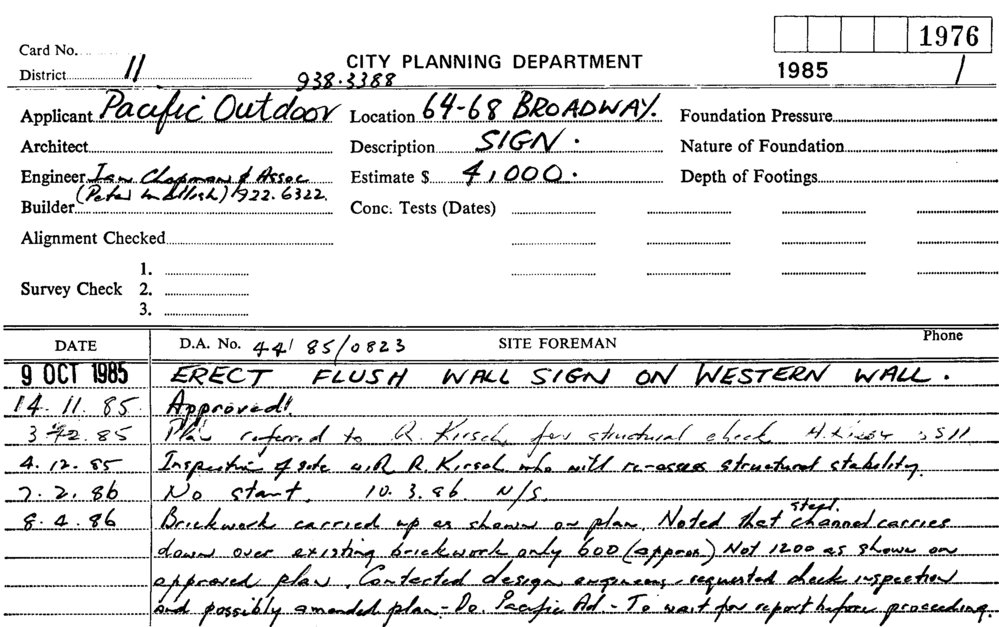 1976
Card No.
CITY PLANNING DEPARTMENT
District 11
1985 1
938.3388
Applicant Pacific Outdoor Location 64-68 BROADWAY. Foundation Pressure
Architect Description SIGN. Nature of Foundation
Engineer Ian Chapman & Assoc Estimate $ 4,000. Depth of Footings
(Peter 922.6322.
Builder Conc. Tests (Dates)
Alignment Checked
1.
Survey Check 2.
3.
DATE D.A. No. 44 85/0823 SITE FOREMAN Phone
9 OCT 1985 ERECT FLUSH WALL SIGN ON WESTERN WALL.
14. 11. 85. Approved!
3 12. 85 Plan referred to R. Kirsch for structural check
4. 12. 85 Inspection of site with R. Kirsch who will re-assess structural stability.
7. 2. 86 No start. 10. 3. 86 N/S.
8. 4. 86 Brickwork carried up as shown on plan. Noted that steel channel carries
down over existing brickwork only 600 (approx) Not 1200 as shown on
approved plan. Contacted design engineers - requested check inspection
and possibly amended plan - Do. Pacific Ad - To wait for report before proceeding.